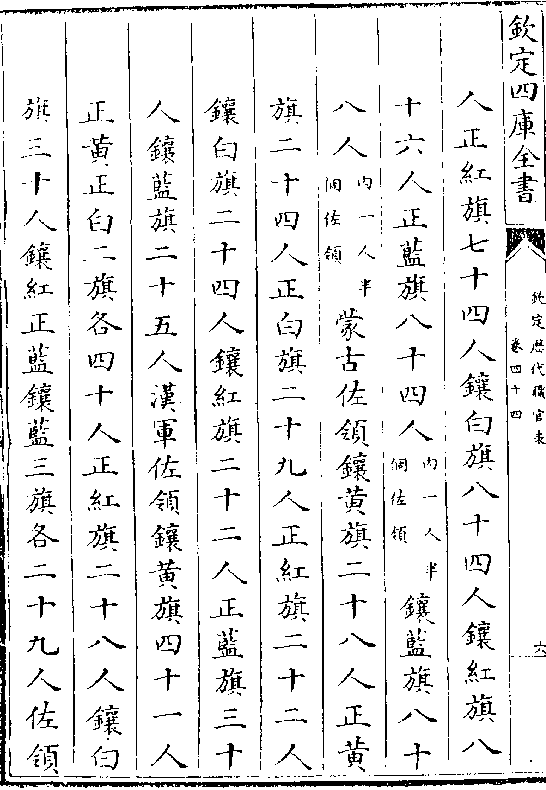 欽定四庫全書
欽定歷代職官表
卷四十四
六
人正紅旗七十四人鑲白旗八十四人鑲紅旗八
十六人正藍旗八十四人内一人半個佐領鑲藍旗八十
八人内一人半個佐領蒙古佐領鑲黃旗二十八人正黃
旗二十四人正白旗二十九人正紅旗二十二人
鑲白旗二十四人鑲紅旗二十二人正藍旗三十
人鑲藍旗二十五人漢軍佐領鑲黃旗四十一人
正黃正白二旗各四十人正紅旗二十八人鑲白
旗三十人鑲紅正藍鑲藍三旗各二十九人佐領